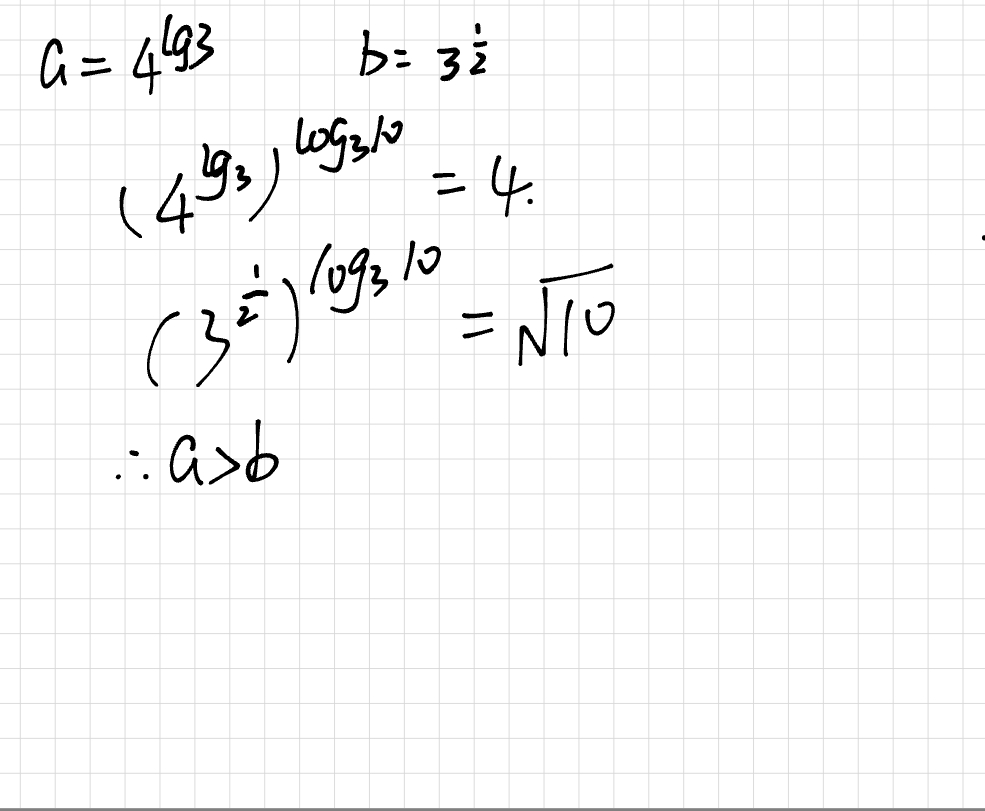 a = 4^{lg3} b = 3^{\frac{1}{2}}
(4^{lg3})^{log_3 10} = 4.
(3^{\frac{1}{2}})^{log_3 10} = \sqrt{10}
∴ a > b